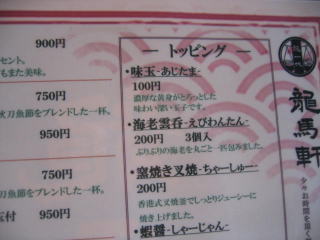 900円
セット。
もまた美味。
750円
秋刀魚節をブレンドした一杯。
950円
750円
魚節をブレンドした一杯。
付 950円
トッピング
・味玉-あじたま-
100円
濃厚な黄身がとろっとした
味わい深い玉子です。
・海老雲呑-えびわんたん-
200円 3個入
ぷりぷりの海老を丸ごと一匹包みました。
・窯焼き叉焼-ちゃーしゅー-
200円
香港式叉焼釜でしっとりジューシーに
焼き上げました。
・蝦醤-しゃーじゃん-
龍馬軒
少々お時間を頂く